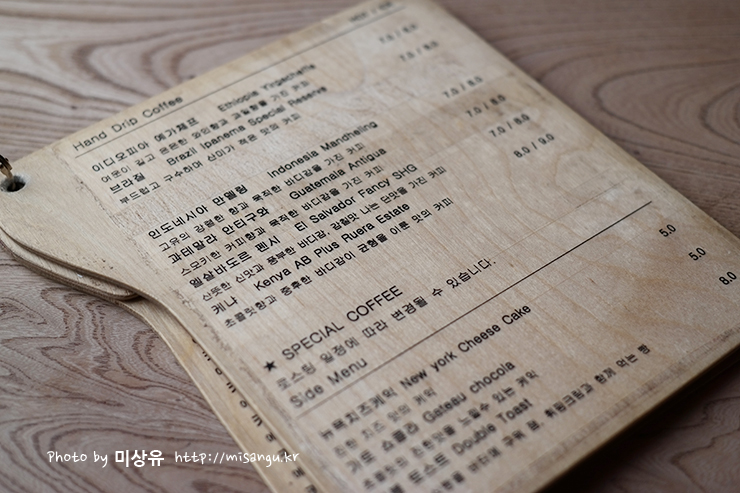 Hand Drip Coffee
이디오피아 예가체프 Ethiopia Yirgacheffe 7.0 / 8.0
여운이 길고 은은한 와인향과 과일향을 가진 커피
브라질 Brazil Ipanema Special Reserve 7.0 / 8.0
부드럽고 구수하며 산미가 적은 맛의 커피
인도네시아 만델링 Indonesia Mandheling 7.0 / 8.0
고유의 강렬한 향과 묵직한 바디감을 가진 커피
과테말라 안티구와 Guatemala Antigua 7.0 / 8.0
스모키한 커피향과 묵직한 바디감을 가진 커피
엘살바도르 펜시 El Salvador Fancy SHG 7.0 / 8.0
산뜻한 신맛과 풍부한 바디감, 감칠맛 나는 단맛을 가진 커피
케냐 Kenya AB Plus Ruera Estate 8.0 / 9.0
초콜릿향과 중후한 바디감이 균형을 이룬 맛의 커피
★ SPECIAL COFFEE
로스팅 일정에 따라 변경될 수 있습니다.
Side Menu
뉴욕치즈케익 New york Cheese Cake 5.0
진한 치즈 맛의 케익
가또 쇼콜라 Gateau chocola 5.0
초콜릿의 진한맛을 느낄수 있는 케익
더블 토스트 Double Toast 8.0
구워 낸, 휘핑크림과 함께 먹는 빵
Photo by 미상유 http://misangu.kr